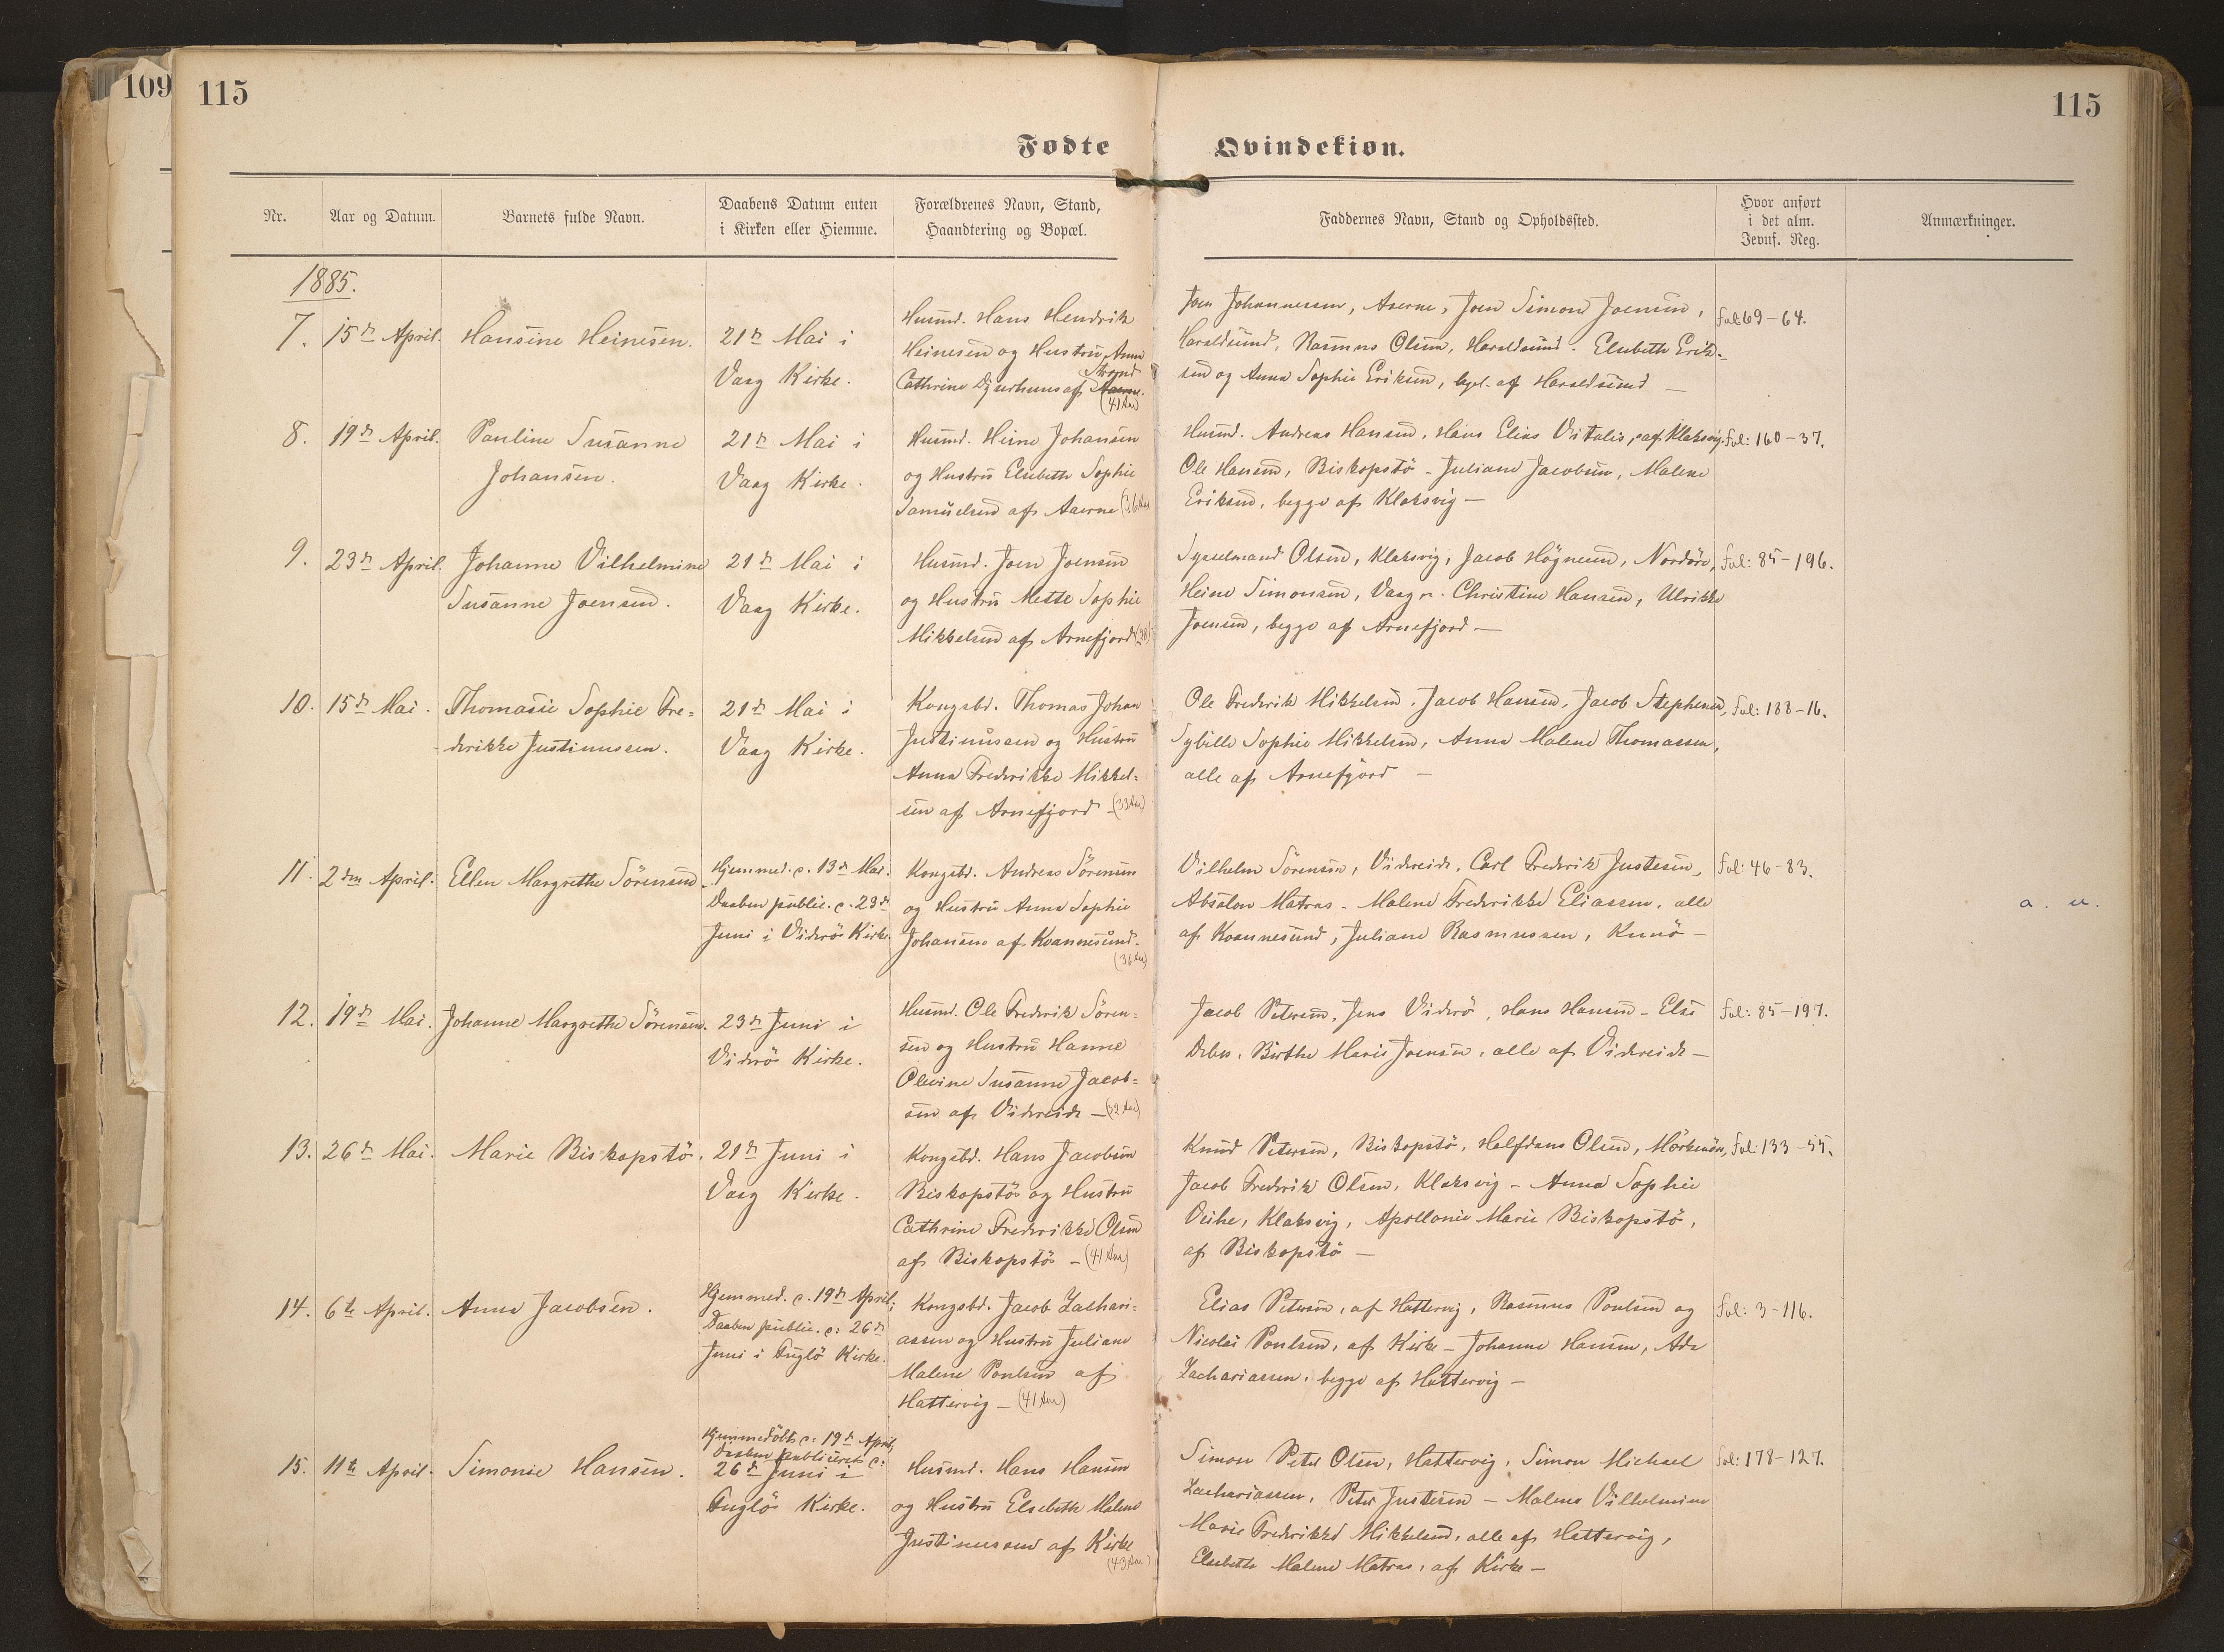 109
115
115
Fødte
Qvindekiøn.
Nr.
Aar og Datum.
Barnets fulde Navn.
Daabens Datum enten
i Kirken eller Hiemme.
Forældrenes Navn, Stand,
Haandtering og Bopæl.
Faddernes Navn, Stand og Opholdssted.
Hvor anført
i det alm.
Jevnf. Reg.
Anmærkninger.
1885.
7. 15de April. Hansine Heinesen.
21de Mai i
Vaag Kirke.
Husmd. Hans Hendrik
Heinesen og Hustru Anna
Strand
Cathrine Djurhuus af
(41 Aar)
Joen Johannessen, Aaerne, Joen Simon Joensen,
Haraldsund, Rasmus Olsen, Haraldsund. Elsebeth Erik-
sen og Anna Sophie Eriksen, af Haraldsund —
fol: 69-64.
8. 19de April. Pauline Susanne
Johansen.
21de Mai i
Vaag Kirke.
Husmd. Heine Johansen
og Hustru Elsebeth Sophie
Samuelsen af Aaerne (36 Aar)
Husmd. Andreas Hansen, Hans Elias Vitalis, af Klaksvig.
Ole Hansen, Biskopstö - Juliane Jacobsen, Malene
Eriksen, begge af Klaksvig —
fol: 160-37.
9. 23de April. Johanne Vilhelmine
Susanne Joensen.
21de Mai i
Vaag Kirke.
Husmd. Joen Joensen
og Hustru Mette Sophie
Mikkelsen af Arnefjord (28)
Sysselmand Olsen, Klaksvig, Jacob Högnesen, Nordöre,
Heine Simonsen, Vaag. Christine Hansen, Ulrikke
Joensen, begge af Arnefjord —
fol: 85-196.
10. 15de Mai. Thomasie Sophie Fre=
derikke Justinussen.
21de Mai i
Vaag Kirke.
Kongsbd. Thomas Johan
Justinussen og Hustru
Anna Frederikke Mikkel=
sen af Arnefjord - (33 Aar)
Ole Frederik Mikkelsen, Jacob Hansen, Jacob Stephensen,
Sybille Sophie Mikkelsen, Anna Malene Thomassen,
alle af Arnefjord —
fol: 188-16.
11. 2den April. Ellen Margrethe Sörensen
Hjemmed. c. 13de Mai.
Daaben public. c. 23de
Juni i Viderö Kirke.
Kongsbd. Andreas Sörensen
og Hustru Anna Sophie
Johansen af Kvannesund.
(36 Aar)
Vilhelm Sörensen, Videreide, Carl Frederik Justesen,
Absalon Matras - Malene Frederikke Eliassen, alle
af Kvannesund, Juliane Rasmussen, Kunö —
fol: 46-83.
a. u.
12. 19de Mai. Johanne Margrethe Sörensen.
23de Juni i
Viderö Kirke.
Husmd. Ole Frederik Sören=
sen og Hustru Hanne
Olevine Susanne Jacob=
sen af Videreide — (32 Aar)
Jacob Petersen, Jens Viderö, Hans Hansen - Else
Debes, Birthe Marie Joensen, alle af Videreide —
fol: 85-197.
13. 26de Mai. Marie Biskopstö.
21de Juni i
Vaag Kirke.
Kongsbd. Hans Jacobsen
Biskopstö og Hustru
Cathrine Frederikke Olsen
af Biskopstö - (41 Aar)
Knud Petersen, Biskopstö, Halfdans Olsen, Mörkenöre,
Jacob Frederik Olsen, Klaksvig - Anna Sophie
Veihe, Klaksvig, Apollonie Marie Biskopstö,
af Biskopstö —
fol: 133-55.
14. 6te April. Anna Jacobsen.
Hjemmed. c. 19de April;
Daaben public. c: 26de
Juni i Fuglö Kirke.
Kongsbd. Jacob Zachari=
assen og Hustru Juliane
Malene Poulsen af
Hattervig — (41 Aar)
Elias Petersen, af Hattervig, Rasmus Poulsen og
Nicolai Poulsen, af Kirke - Johanne Hansen, Ada
Zachariassen, begge af Hattervig —
fol: 3-116.
15. 11te April. Simonie Hansen.
Hjemmedöbt c: 19de April,
Daaben publiceret c:
26de Juni i
Fuglö Kirke.
Husmd. Hans Hansen
og Hustru Elsebeth Malene
Justinussen af Kirke
(43 Aar)
Simon Peter Olsen, Hattervig, Simon Michael
Zachariassen, Peter Justesen — Malene Vilhelmine
Marie Frederikke Mikkelsen, alle af Hattervig,
Elsebeth Malene Matras, af Kirke —
fol: 178-127.